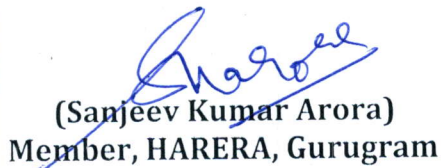 (Sanjeev Kumar Arora)
Member, HARERA, Gurugram